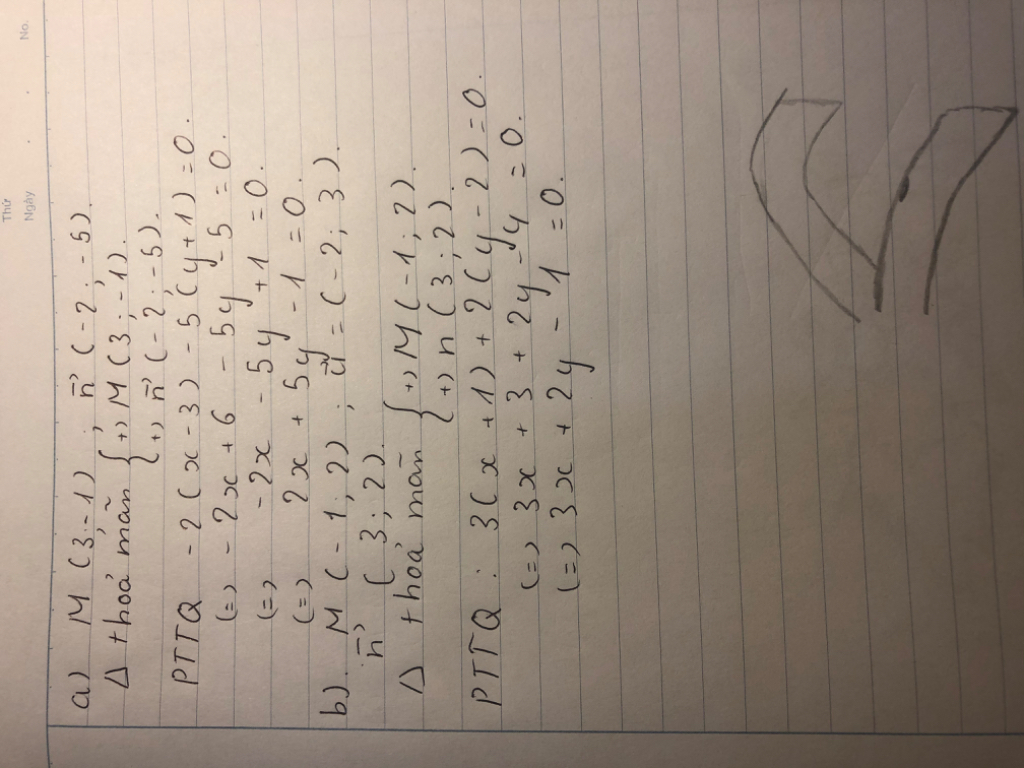 No.
Thứ
Ngày
a) M (3;-1) ; n⃗ (-2; -5).
Δ thoả mãn { +) M (3; -1).
{ +) n⃗ (-2; -5).
PTTQ - 2 (x - 3) - 5 (y + 1) = 0.
(=) - 2x + 6 - 5y - 5 = 0.
(=) - 2x - 5y + 1 = 0.
(=) 2x + 5y - 1 = 0.
b). M (- 1; 2) ; u⃗ = (- 2; 3).
n⃗ (3; 2).
Δ thoả mãn { +) M (- 1; 2).
{ +) n (3; 2).
PTTQ : 3(x + 1) + 2 (y - 2) = 0.
(=) 3x + 3 + 2y - 4 = 0.
(=) 3x + 2y - 1 = 0.